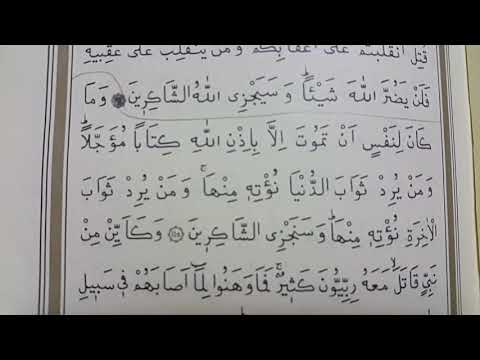 قُتِلَ انْقَلَبْتُمْ عَلٰٓى اَعْقَابِكُمْ وَمَنْ يَنْقَلِبْ عَلٰى عَقِبَيْهِ
فَلَنْ يَضُرَّ اللّٰهَ شَيْئًاۜ وَسَيَجْزِى اللّٰهُ الشَّاكِرٖينَ وَمَا
كَانَ لِنَفْسٍ اَنْ تَمُوتَ اِلَّا بِاِذْنِ اللّٰهِ كِتَابًا مُؤَجَّلًاۜ
وَمَنْ يُرِدْ ثَوَابَ الدُّنْيَا نُؤْتِهٖ مِنْهَاۚ وَمَنْ يُرِدْ ثَوَابَ
الْاٰخِرَةِ نُؤْتِهٖ مِنْهَاۜ وَسَنَجْزِى الشَّاكِرٖينَ ١٤٥ وَكَاَيِّنْ مِنْ
نَبِىٍّ قَاتَلَۙ مَعَهُ رِبِّيُّونَ كَثٖيرٌۚ فَمَا وَهَنُوا لِمَٓا اَصَابَهُمْ فٖى سَبٖيلِ